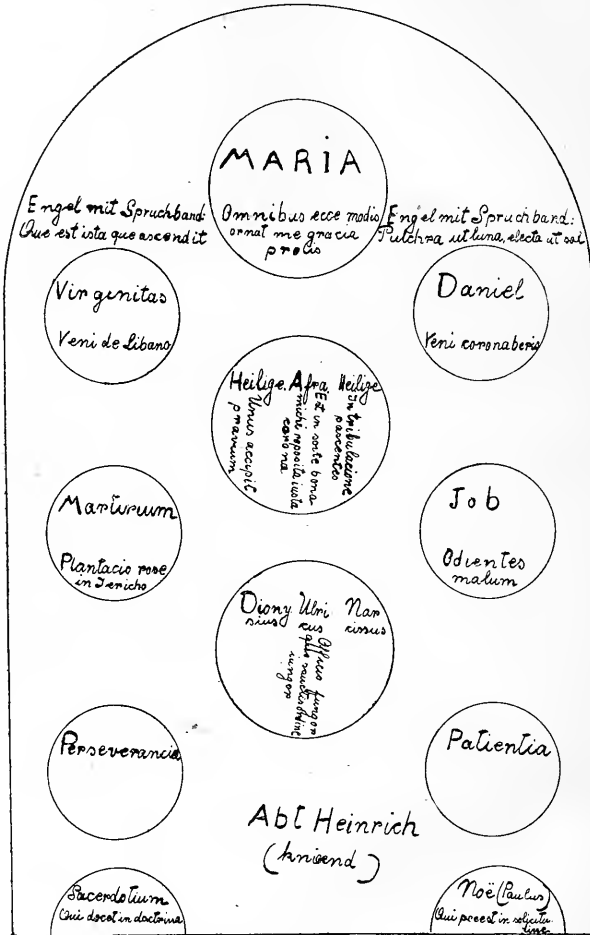 MARIA
Omnibus ecce modis
ornat me gracia
prolis
Engel mit Spruchband:
Que est ista que ascendit
Engel mit Spruchband:
Pulchra ut luna, electa ut sol
Virginitas
Veni de Libano
Daniel
Veni coronaberis
Heilige. Afra. Heilige
Unus accipit
pravium
Est in sorte bona
michi reposita iusta
corona
In tribulacione
pascentes
Marturium
Plantacio rose
in Jericho
Job
Odientes
malum
Diony
sius
Ulri
cus
Nar
cissus
Officio fungor
quo sanctis ordine
iungor
Perseverancia
Patientia
Abt Heinrich
(knieend)
Sacerdotium
Qui docet in doctrina
Noë (Paulus)
Qui preest in solicitu-
tine